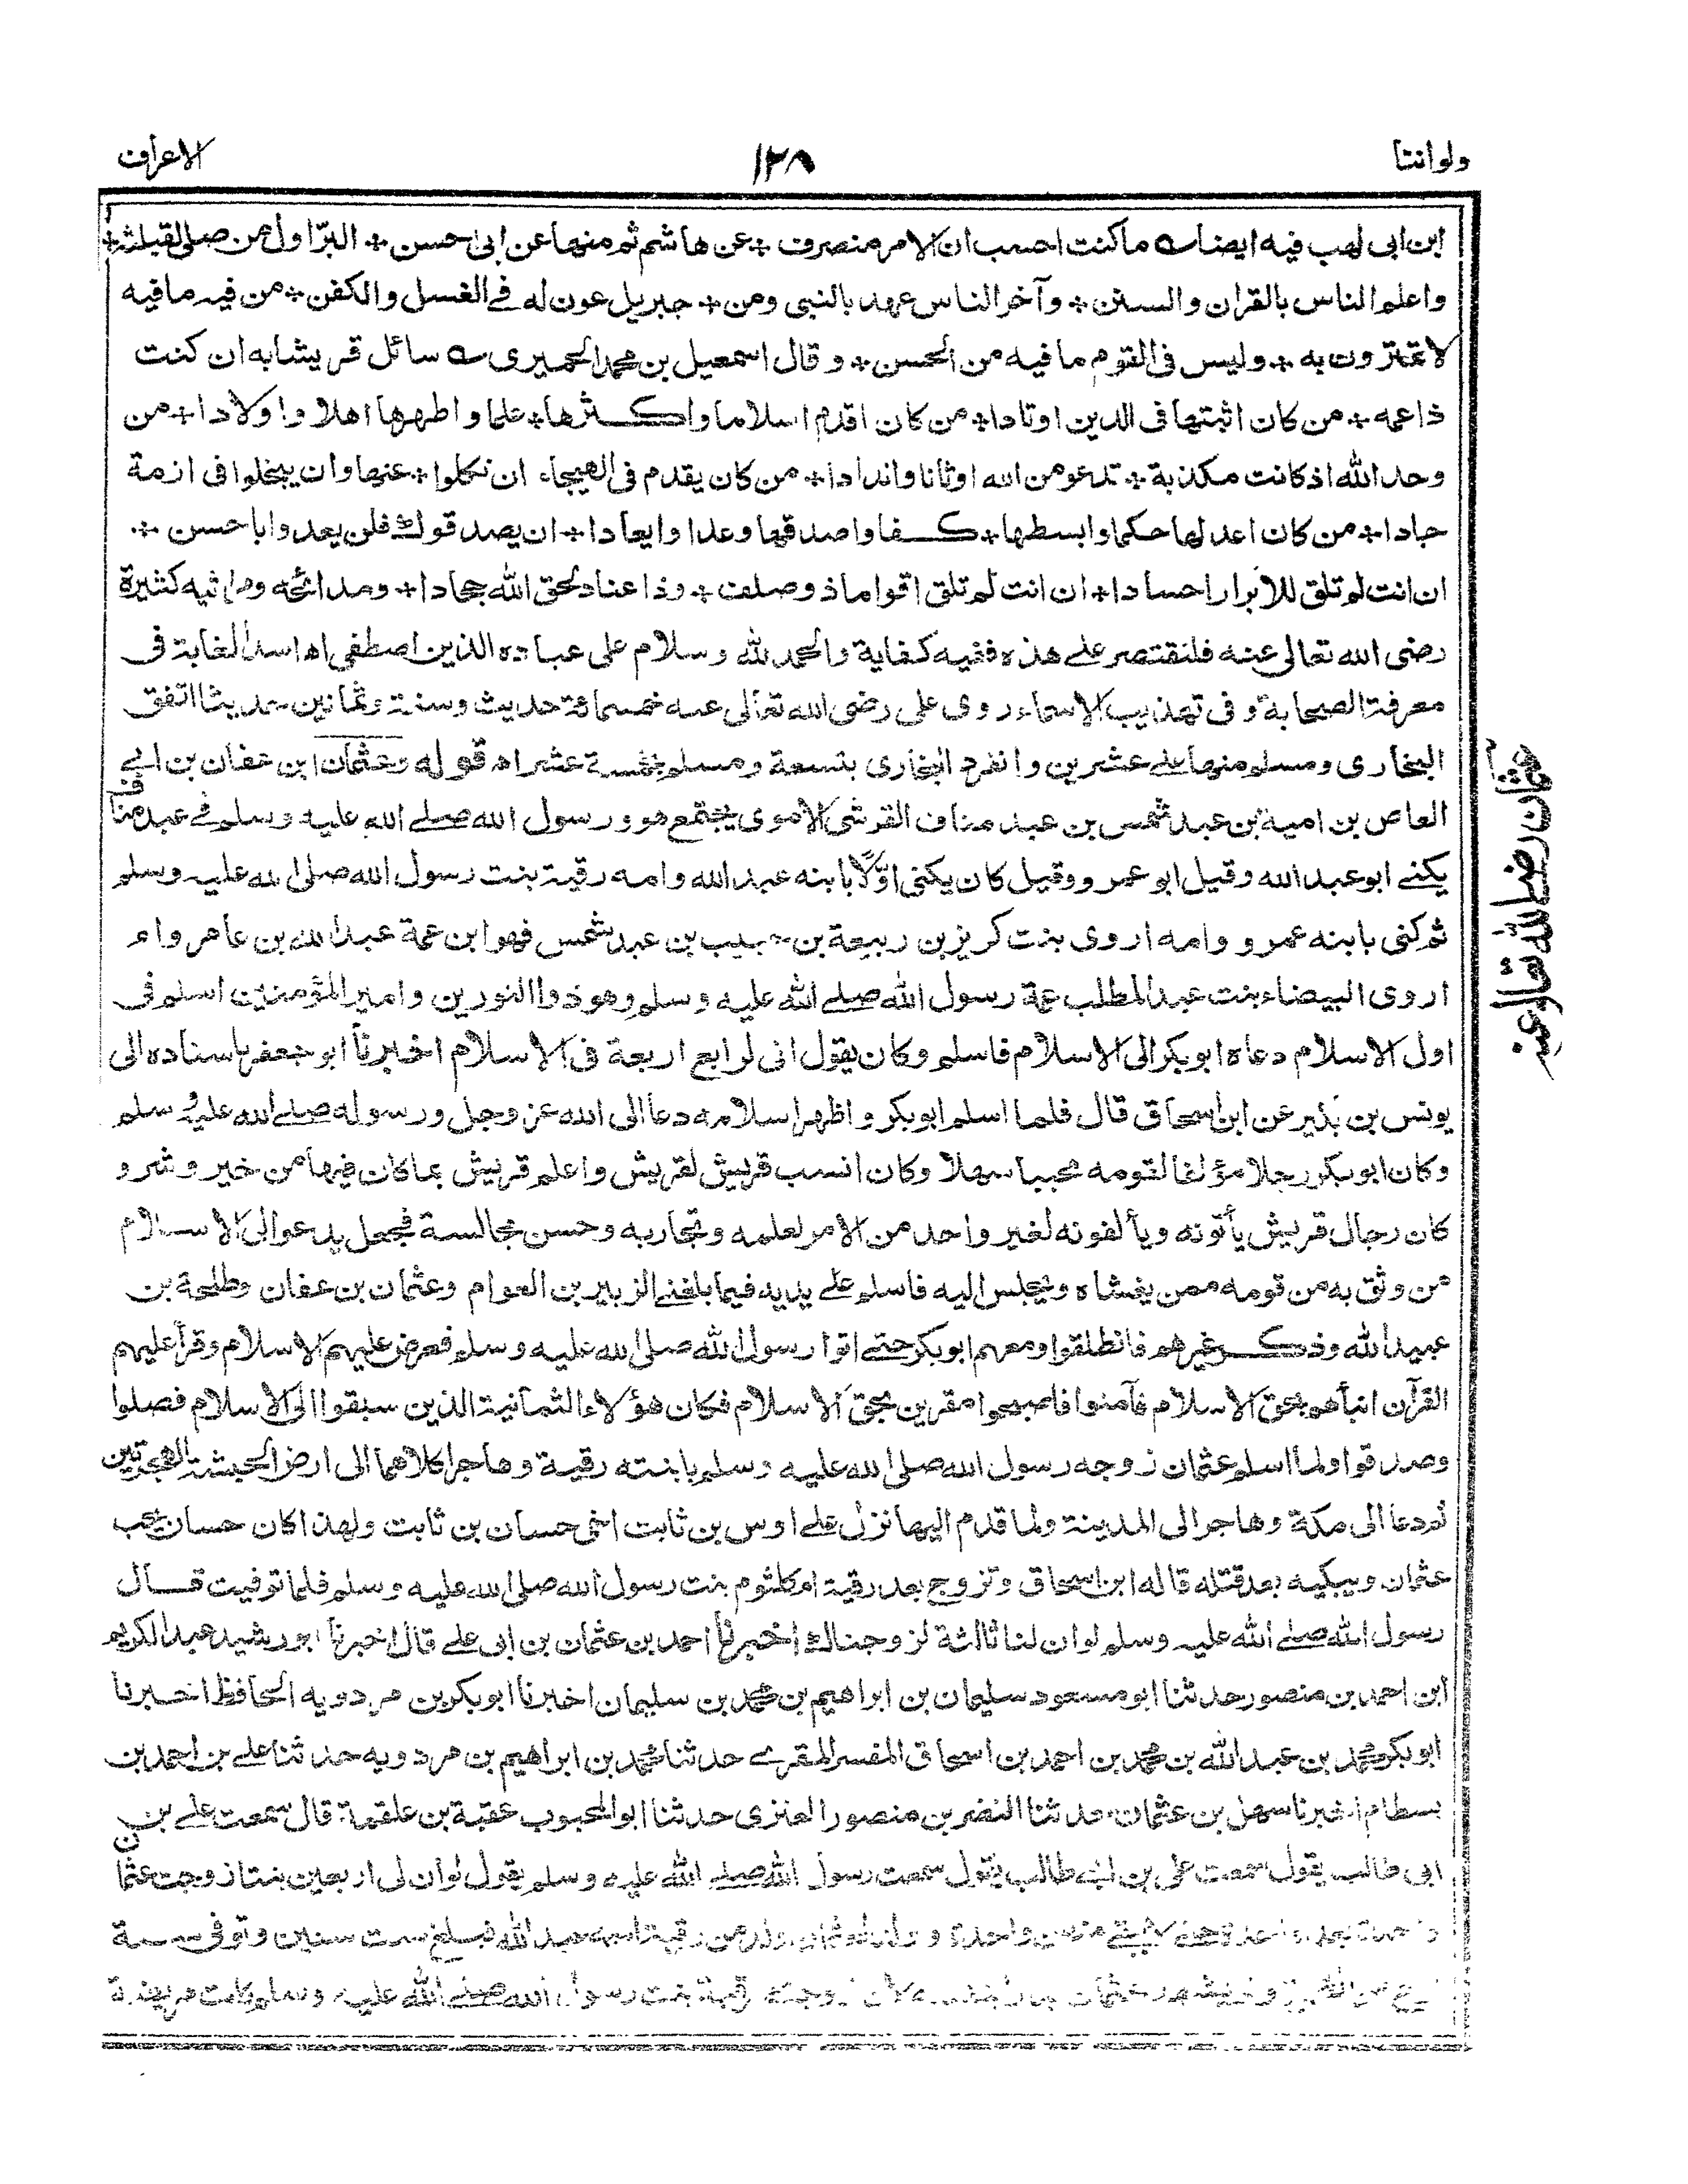 ولوانتا
١٢٨
الاعراف
ابن ابى لهب فيه ايضا ماكنت احسب ان الامر منصرف * عن هاشم ثم منها عن ابى حسن * البرّ اول من صلى لقبلته *
واعلم الناس بالقران والسنن * وآخر الناس عهد بالنبى ومن * جبريل عون له فے الغسل والكفن * من فيه ما فيه
لا تمترون به * وليس فى القوم ما فيه من الحسن * و قال اسمعيل بن محمد الحميرى سائل قريشا به ان كنت
ذا عمه * من كان اثبتها فى الدين اوتادا * من كان اقدم اسلاما واكثرها * علما و اطهرها اهلا و اولادا * من
وحد الله اذ كانت مكذبة * تدعو من الله اوثانا واندادا * من كان يقدم فى الهيجاء ان نكلوا * عنها وان يبخلوا فى ازمة
جادا * من كان اعدلها حكما وابسطها * كفا واصدقها وعدا وايعادا * ان يصدقوك فلن يعدوا ابا حسن *
ان انت لم تلق للابرار احسادا * ان انت لم تلق اقواما ذوصلف * وذا عناد لحق الله جحادا * ومدائحه ومراثيه كثيرة
رضى الله تعالى عنه فلنقتصر على هذه ففيه كفاية والحمد لله وسلام على عباده الذين اصطفى اه اسد الغابة فى
معرفة الصحابة و فى تهذيب الاسماء روى على رضى الله تعالى عنه خمسمائة حديث وستة وثمانين حديثا اتفق
البخارى ومسلم منها على عشرين وانفرد البخارى بتسعة ومسلم بخمسة عشر اه قوله وعثمان ابن عفان بن ابے
العاص بن امية بن عبد شمس بن عبد مناف القرشى الاموى يجتمع هو ورسول الله صلے الله عليه وسلم فے عبد مناف
يكنے ابو عبد الله وقيل ابو عمرو وقيل كان يكنى اوّلا بابنه عبد الله وامه رقية بنت رسول الله صلى الله عليه وسلم
ثم كنى بابنه عمرو وامه اروى بنت كريز بن ربيعة بن حبيب بن عبد شمس فهو ابن عمة عبد الله بن عامر وام
اروى البيضاء بنت عبد المطلب عمة رسول الله صلے الله عليه وسلم وهو ذوالنورين وامير المؤمنين اسلم فى
اول الاسلام دعاه ابوبكر الى الاسلام فاسلم وكان يقول انى لرابع اربعة فى الاسلام اخبرنا ابو جعفر باسناده الى
يونس بن بكير عن ابن اسحاق قال فلما اسلم ابوبكر واظهر اسلامه دعا الى الله عز وجل ورسوله صلے الله عليه وسلم
وكان ابوبكر رجلا مؤلفا لقومه محببا سهلا وكان انسب قريش لقريش واعلم قريش بما كان فيها من خير وشر و
كان رجال قريش يأتونه ويألفونه لغير واحد من الامر لعلمه وتجاربه وحسن مجالسة فجعل يدعوا الى الاسلام
من وثق به من قومه ممن يغشاه ويجلس اليه فاسلم علے يديه فيما بلغنى الزبير بن العوام وعثمان بن عفان وطلحة بن
عبيد الله وذكر غيرهم فانطلقوا ومعهم ابوبكر حتے اتوا رسول الله صلى الله عليه وسلم فعرض عليهم الاسلام وقرأ عليهم
القرآن انبأهم بحق الاسلام فآمنوا فاصبحوا مقرين بحق الاسلام فكان هؤلاء الثمانية الذين سبقوا الى الاسلام فصلوا
وصدقوا ولما اسلم عثمان زوجه رسول الله صلى الله عليه وسلم بابنته رقية وهاجرا كلاهما الى ارض الحبشة الهجرتين
ثم دعا الى مكة وهاجر الى المدينة ولما قدم اليها نزل علے اوس بن ثابت اخى حسان بن ثابت ولهذا كان حسان يحب
عثمان ويبكيه بعد قتله قاله ابن اسحاق وتزوج بعد رقية ام كلثوم بنت رسول الله صلى الله عليه وسلم فلما توفيت قال
رسول الله صلے الله عليه وسلم لو ان لنا ثالثة لزوجناك اخبرنا احمد بن عثمان بن ابى على قال اخبرنا ابو رشيد عبد الكريم
ابن احمد بن منصور حدثنا ابو مسعود سليمان بن ابراهيم بن محمد بن سليمان اخبرنا ابوبكر بن مردويه الحافظ اخبرنا
ابوبكر محمد بن عبد الله بن محمد بن احمد بن اسحاق المفسر المقرے حدثنا محمد بن ابراهيم بن مردويه حدثنا على بن احمد بن
بسطام اخبرنا سهل بن عثمان حدثنا النضر بن منصور العنزى حدثنا ابو المحبوب عقبة بن علقمة قال سمعت على بن
ابى طالب يقول سمعت على بن ابے طالب يقول سمعت رسول الله صلے الله عليه وسلم يقول لو ان لى اربعين بنتا زوجت عثمان
واحدة بعد واحدة حتى لا يبقے منهن واحدة و ولد لعثمان ولد من رقية اسمه عبد الله فبلغ ست سنين وتوفى سنة
زوجته رقية بنت رسول الله صلے الله عليه وسلم كانت مريضة
عثمان رضى الله تعالى عنه